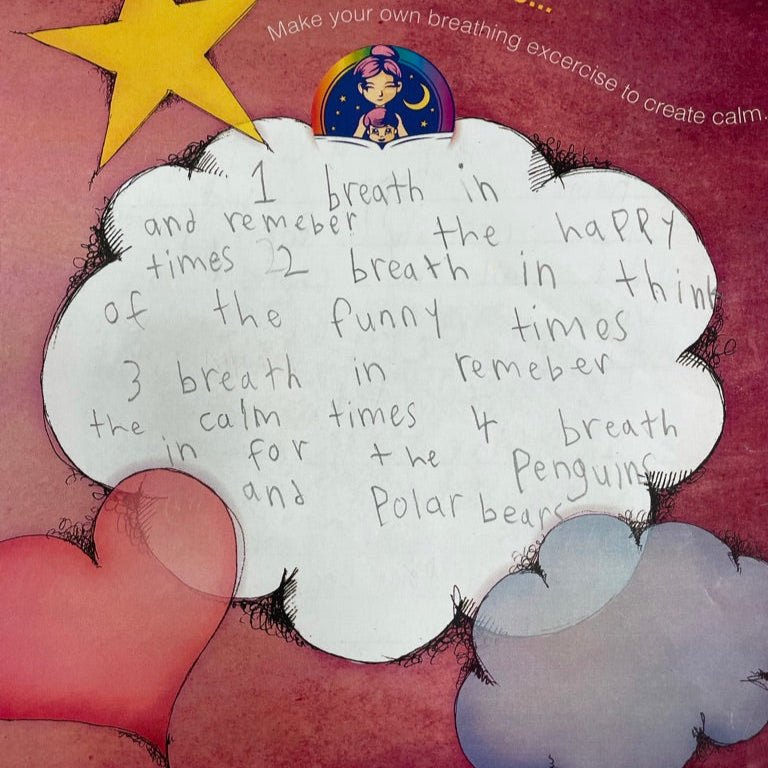 Make your own breathing excercise to create calm.
1 breath in
and remeber the happy
times 2 breath in think
of the funny times
3 breath in remeber
the calm times 4 breath
in for the Penguins
and Polar bears